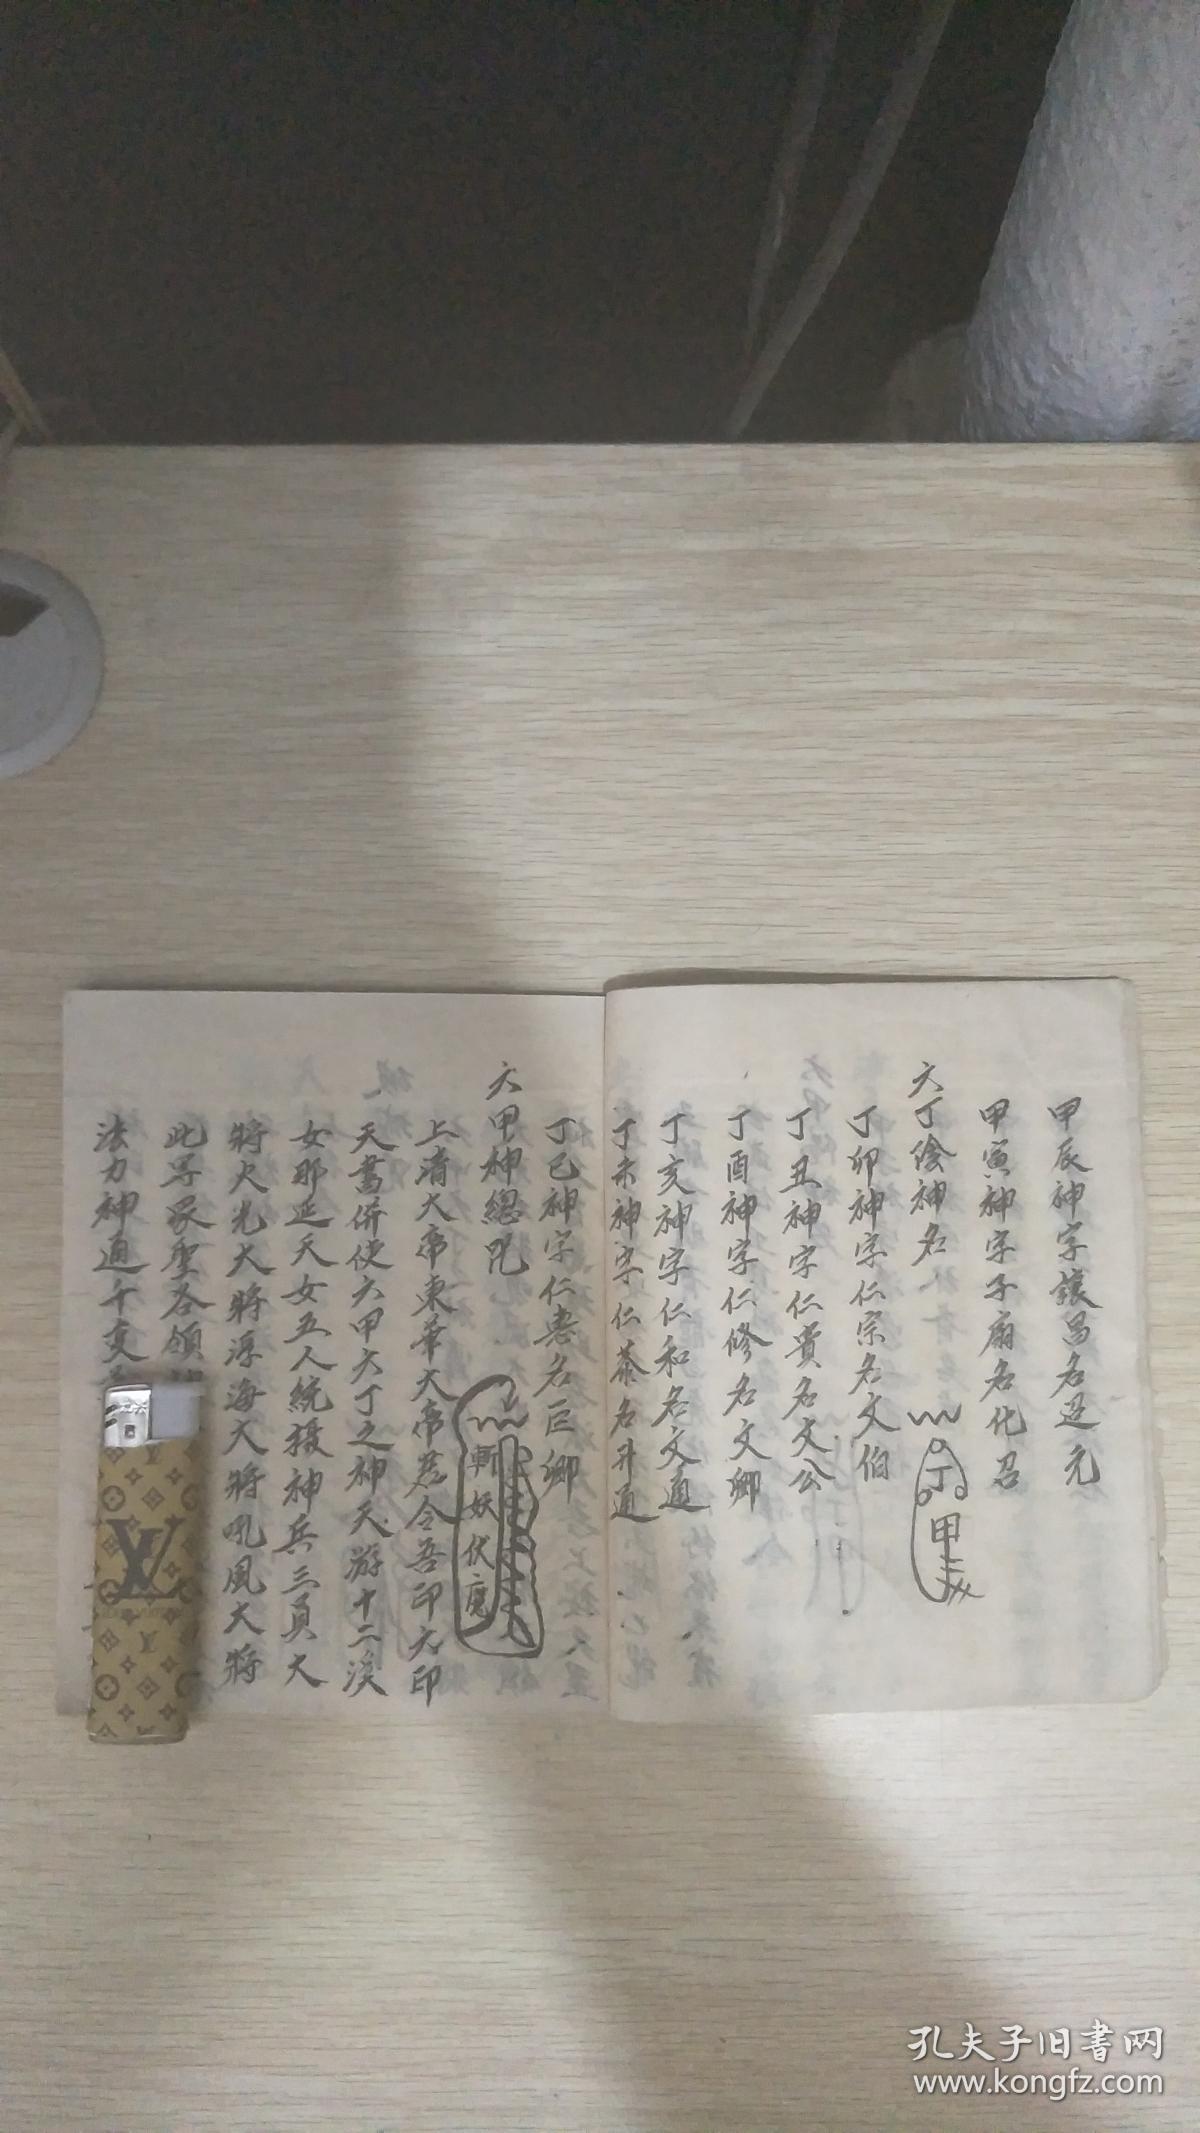 甲辰神字讓昌名迅元
甲寅神字子廟名化召
六丁陰神名
丁甲
丁卯神字仁宗名文伯
丁丑神字仁貴名文公
丁酉神字仁修名文卿
丁亥神字仁和名文通
丁未神字仁恭名升通
丁巳神字仁惠名巨卿
六甲神總咒
斬妖伏魔
上清大帝東華大帝君令吾印六印
天書併使六甲六丁之神天游十二溪
女那延天女五人統攝神兵三員大
將火光大將浮海大將吼風大將
此等眾聖各領
法力神通千变
LV
孔夫子旧書网
www.kongfz.com